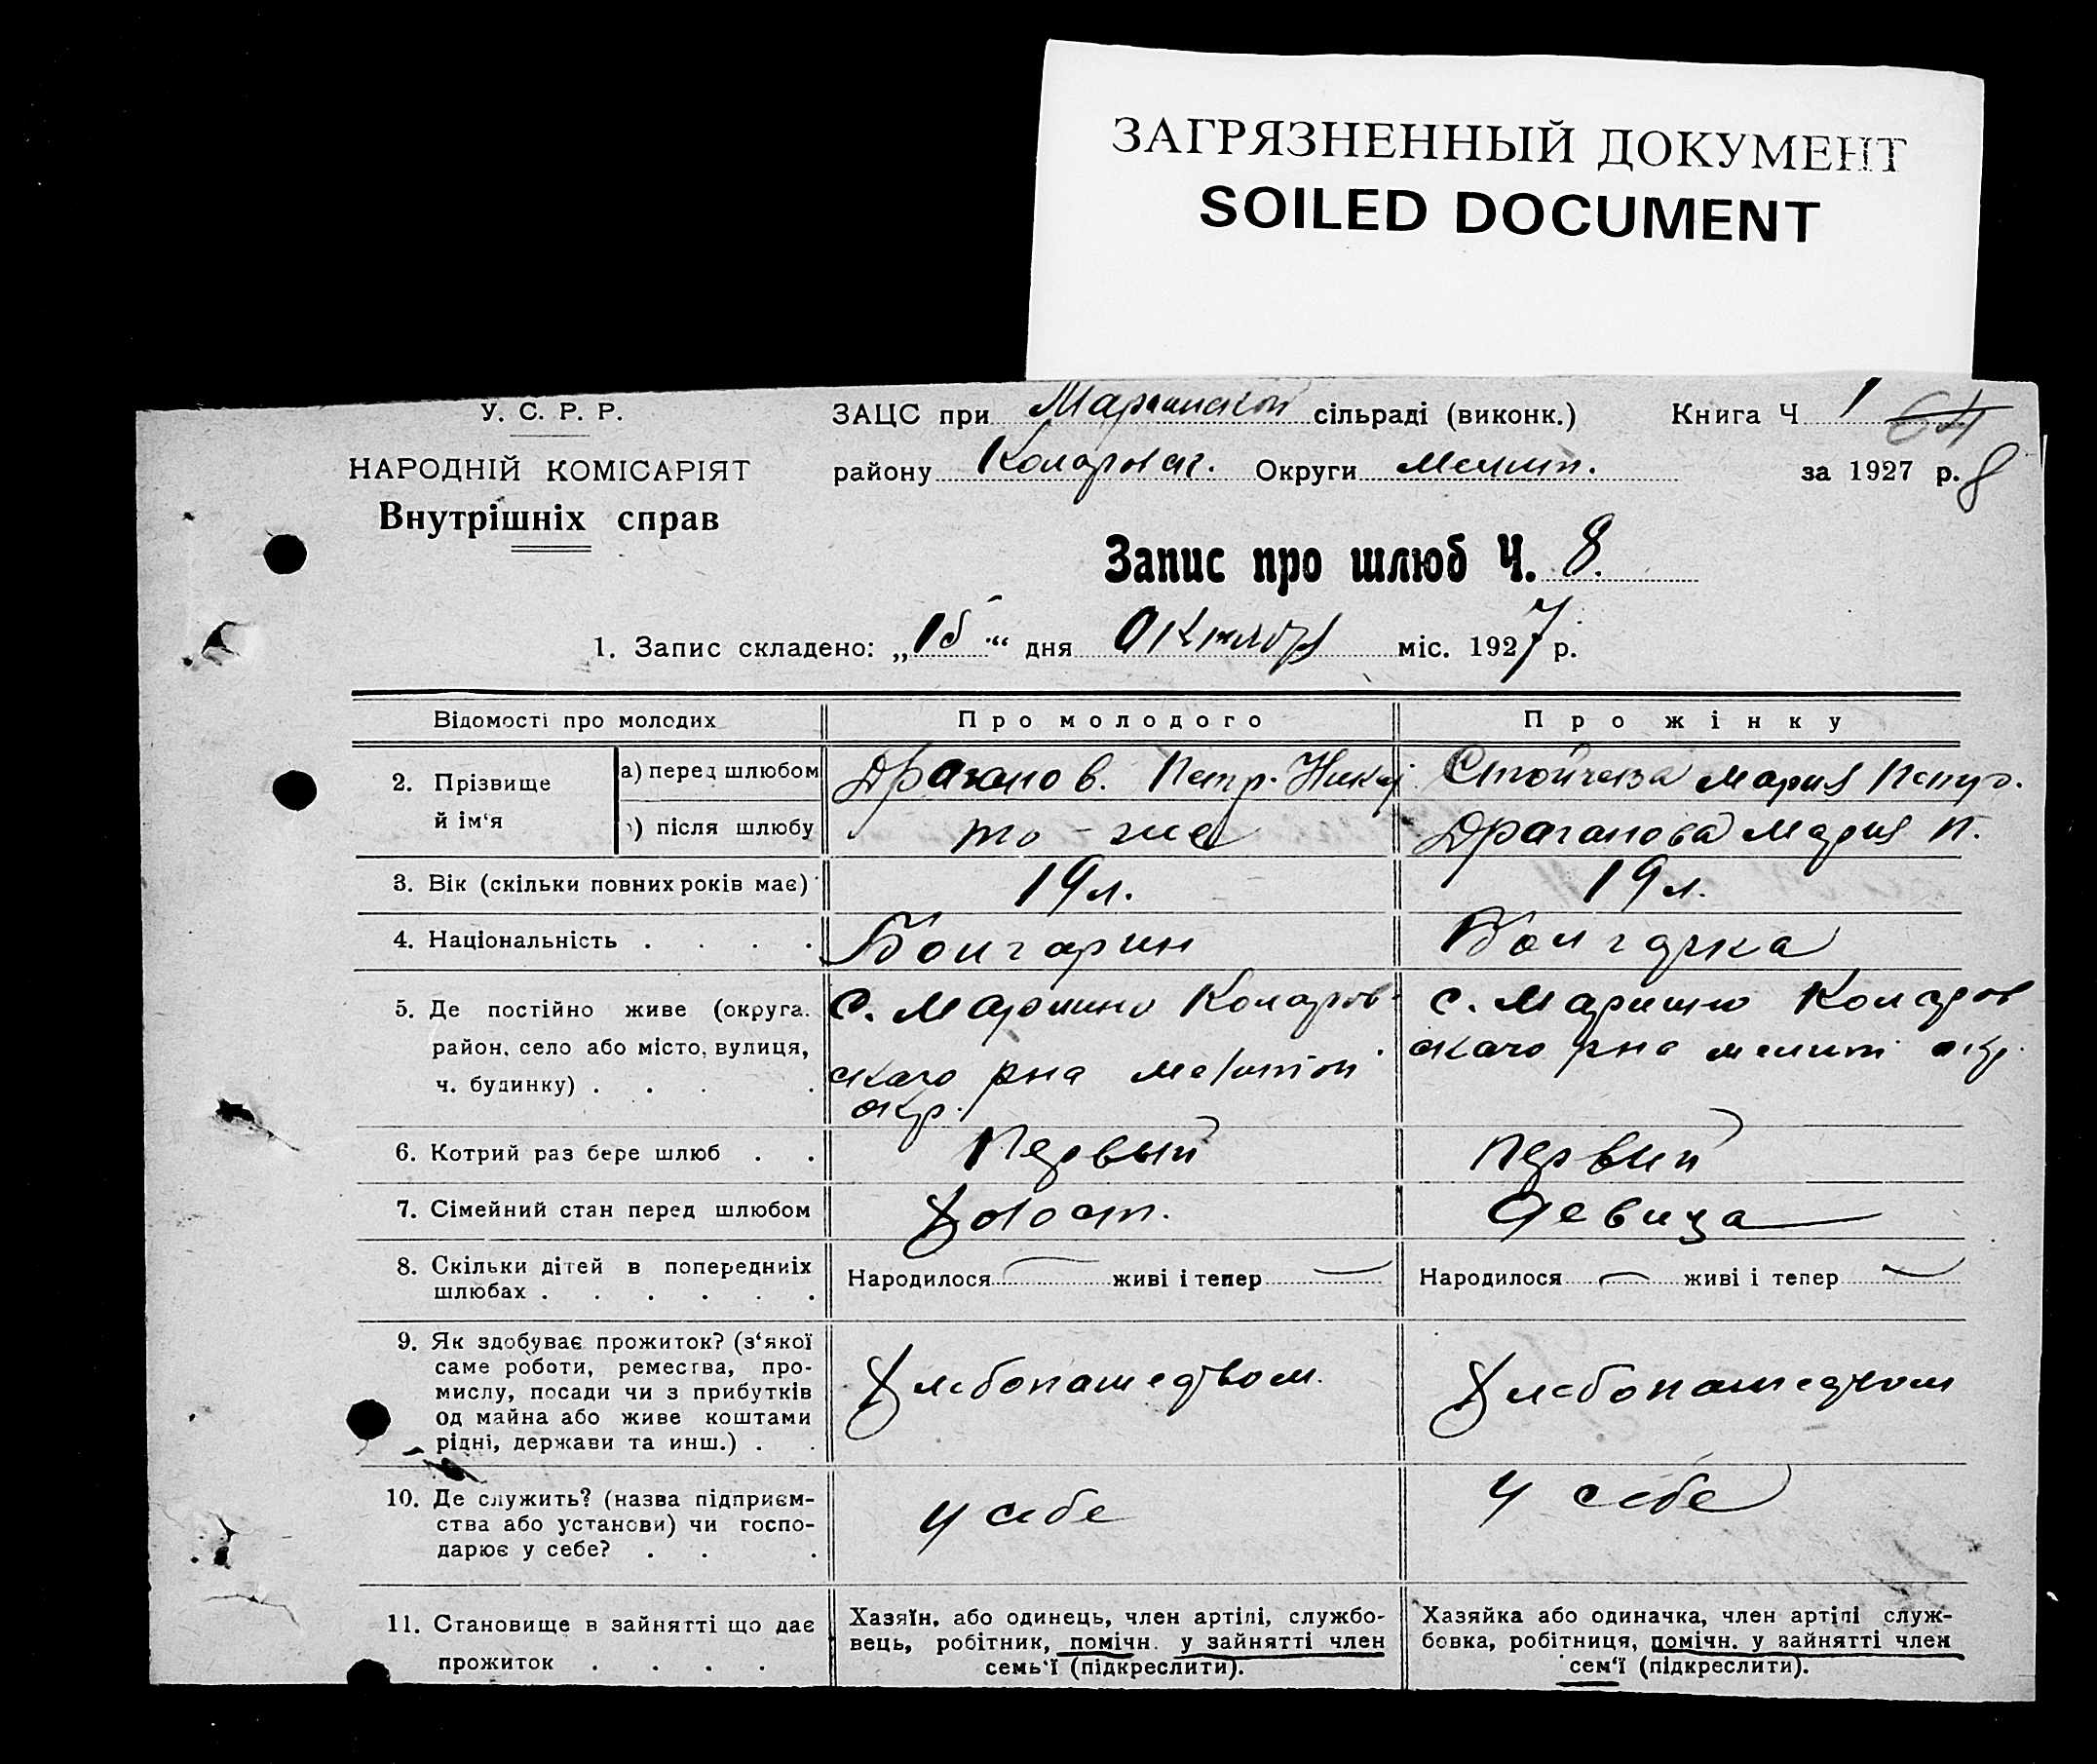 ЗАГРЯЗНЕННЫЙ ДОКУМЕНТ
SOILED DOCUMENT
У. С. Р. Р.
НАРОДНІЙ КОМІСАРІЯТ
Внутрішніх справ
ЗАЦС при сільраді (виконк.) Книга Ч 1 64
району Коларовск. Округи Мелит. за 1927 р. 8
Запис про шлюб Ч. 8.
1. Запис складено: „15“ дня Октября міс. 1927 р.
Відомості про молодих Про молодого Про жінку
2. Прізвище й ім‘я
а) перед шлюбом Драганов. Петр. Никол Стойчева Мария
) після шлюбу то-же Драганова Мария П.
3. Вік (скільки повних років має) 19 л. 19 л.
4. Національність . . . . Болгарин Болгарка
5. Де постійно живе (округа. с. Марино Коларов- с. Марино Коларов
район, село або місто, вулиця, ского рна Мелитоп ского рна мелит окр.
ч. будинку) . . . окр.
6. Котрий раз бере шлюб . . Первый первий
7. Сімейний стан перед шлюбом Холост. девица
8. Скільки дітей в попередниіх Народилося — живі і тепер — Народилося — живі і тепер —
шлюбах . . . . . .
9. Як здобуває прожиток? (з‘якої
саме роботи, ремества, про-
мислу, посади чи з прибутків Хлебопашеством. Хлебопашеством
од майна або живе коштами
рідні, держави та инш.) . .
10. Де служить? (назва підприєм-
ства або установи) чи госпо- у себе у себе
дарює у себе? . . .
11. Становище в зайнятті що дає Хазяїн, або одинець, член артілі, службо- Хазяйка або одиначка, член артілі служ-
вець, робітник, помічн. у зайнятті член бовка, робітниця, помічн. у зайнятті член
прожиток . . . . семь‘ї (підкреслити). сем‘ї (підкреслити).